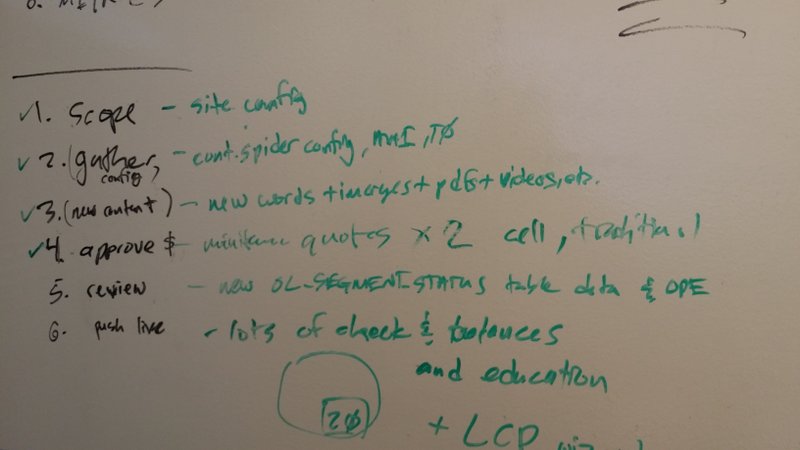 ✓1. Scope - site config
✓2. (gather, config) - cont. spider config, MMI, TØ
✓3. (new content) - new words + images + pdfs + videos, etc.
✓4. approve $ - quotes x 2 cell, traditional
5. review - new OL_SEGMENT_STATUS table data & OPE
6. push live - lots of check & balances
and education
20
+ LCP